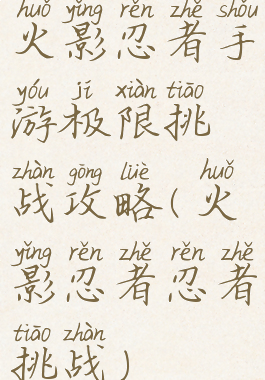 huǒ yǐng rěn zhě shǒu
火影忍者手
yóu jí xiàn tiāo
游极限挑
zhàn gōng lüè huǒ
战攻略(火
yǐng rěn zhě rěn zhě
影忍者忍者
tiāo zhàn
挑战)